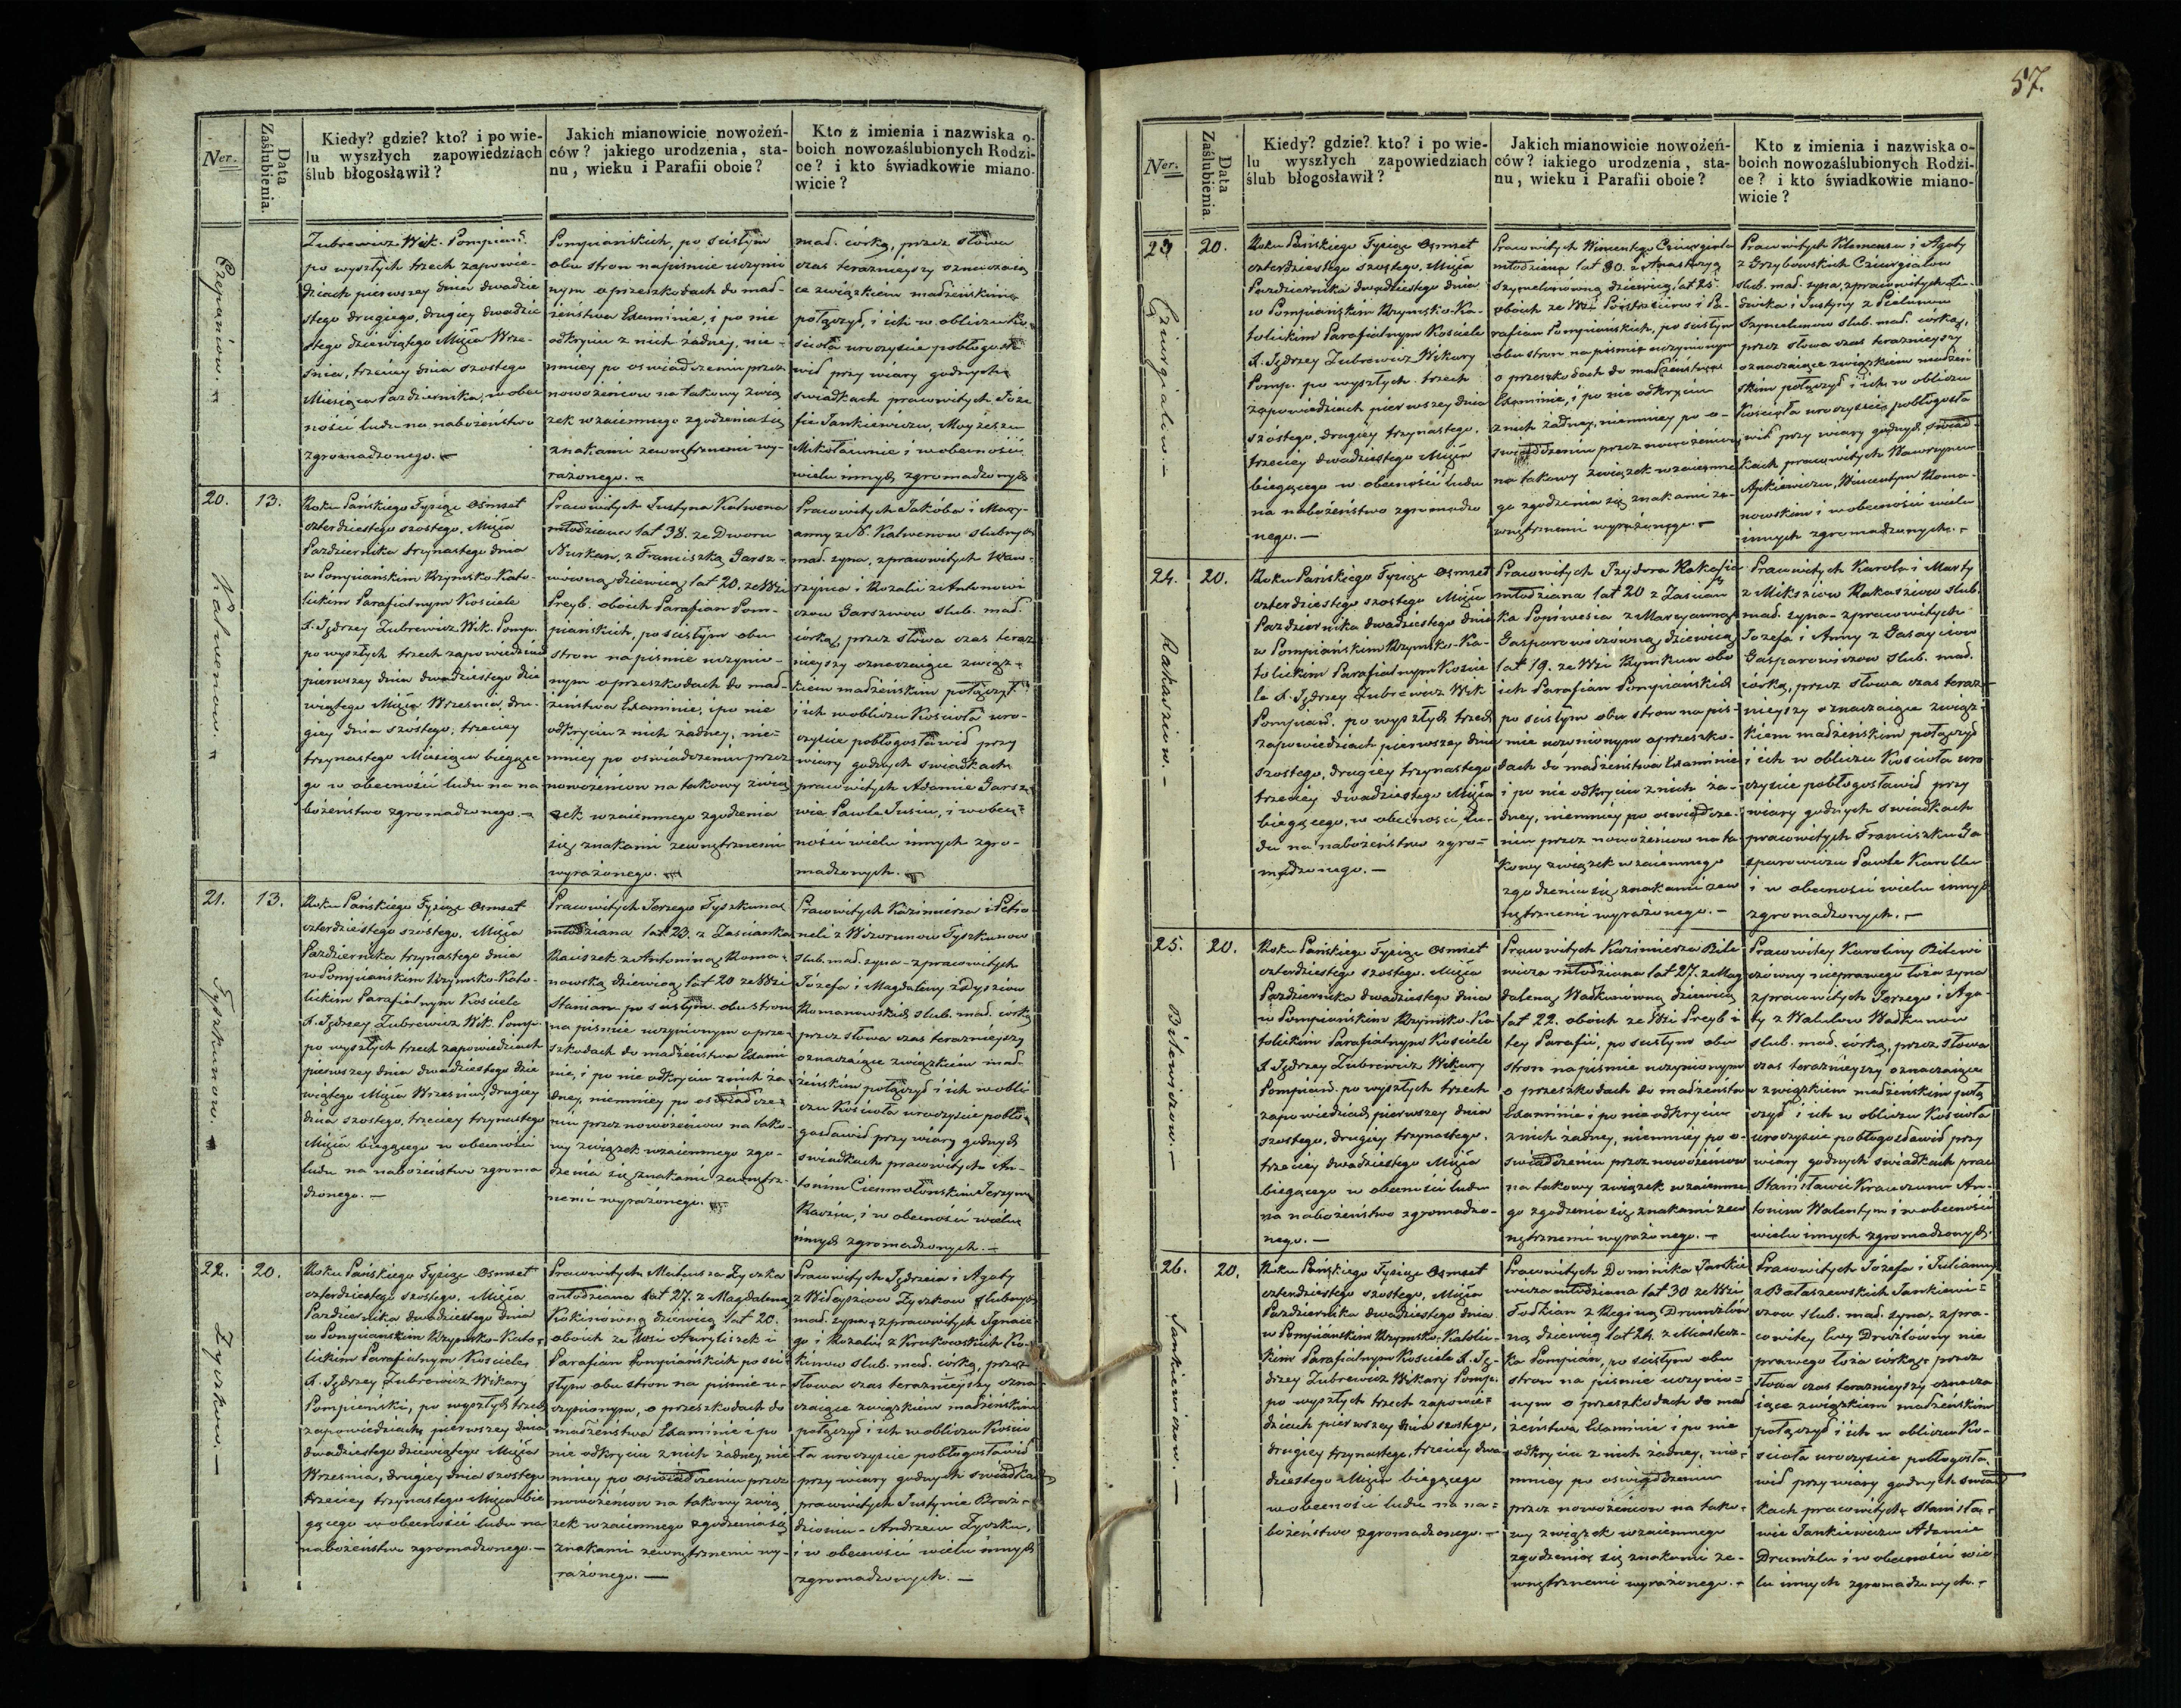 57.
Ner.
Data Zaślubienia.
Kiedy? gdzie? kto? i po wie-
lu wyszłych zapowiedziach
ślub błogosławił?
Jakich mianowicie nowożeń-
ców? jakiego urodzenia, sta-
nu, wieku i Parafii oboie?
Kto z imienia i nazwiska o-
boich nowozaślubionych Rodzi-
ce? i kto świadkowie miano-
wicie?
Zubrewicz Wik. Pompiań.
po wyszłych trzech zapowie-
dziach pierwszey dnia dwadzie
stego drugiego, drugiey dwadzie
stego dziewiątego Msca Wrze-
śnia, trzeciey dnia szostego
Miesiąca Pazdziernika, w obec
ności ludu na nabożeństwo
zgromadzonego.
Pompiańskich, po scisłym
obu stron na pismie uczynio
nym o przeszkodach do mał-
żeństwa Examinie, i po nie
odkryciu z nich żadney, nie-
mniey po oswiadczeniu przez
nowożeńcow na takowy zwią
zek wzaiemnego zgodzenia się
znakami zewnętrznemi wy-
rażonego.
mał. córką, przez słowa
czas teraźnieyszy oznaczaią
ce związkiem małżeńskim
połączył, i ich w obliczu Ko-
scioła uroczyscie pobłogosła
wił przy wiary godnych
swiadkach pracowitych Józe
fie Jankiewiczu, Moyżeszu
Mikołaiunie i w obecności
wielu innych zgromadzonych
20.
13.
Kalwenow.
Roku Pańskiego Tysiąc Osmset
czterdziestego szóstego, Msca
Pazdziernika trzynastego dnia
w Pompiańskim Rzymsko-Kato-
lickim Parafialnym Kosciele
X. Jędrzey Zubrewicz Wik. Pomp.
po wyszłych trzech zapowiedziach
pierwszey dnia dwadziestego dzie
wiątego Msca Wrzesnia, dru-
giey dnia szóstego, trzeciey
trzynastego Miesiąca biegące
go w obecności ludu na na
bożeństwo zgromadzonego.
Pracowitych Justyna Kalwena
młodziana lat 38. ze Dworu
Nurkan, z Franciszką Garsz-
wówną dziewicą lat 20. ze Wsi
Preyb. oboich Parafian Pom-
piańskich, po scisłym obu
stron na pismie uczynio-
nym o przeszkodach do mał-
żeństwa Examinie, i po nie
odkryciu z nich żadney, nie-
mniey po oświadczeniu przez
nowożeńcow na takowy zwią
zek wzaiemnego zgodzenia
się znakami zewnętrznemi
wyrażonego.
Pracowitych Jakóba i Mary-
anny Kalwenow slubnych
mał. syna, z pracowitych Waw-
rzyńca i Rozalii z Antonowi
czow Garszwow slub. mał.
córką, przez słowa czas teraz
nieyszy oznaczaiące związ-
kiem małżeńskim połączył
i ich w obliczu Kościoła uro-
czyscie pobłogosławił przy
wiary godnych swiadkach
pracowitych Adamie Garsz-
wie Pawle Jusiu, i w obec-
ności wielu innych zgro-
madzonych.
21.
13.
Tyszkunow.
Roku Pańskiego Tysiąc Osmset
czterdziestego szóstego, Msca
Pazdziernika trzynastego dnia
w Pompiańskim Rzymsko-Kato-
lickim Parafialnym Kosciele
X. Jędrzey Zubrewicz Wik. Pomp.
po wyszłych trzech zapowiedziach
pierwszey dnia dwadziestego dzie
wiątego Msca Wrzesnia, drugiey
dnia szostego, trzeciey trzynastego
Msca biegącego w obecności
ludu na nabożeństwo zgroma
dzonego.
Pracowitych Jerzego Tyszkuna
młodziana lat 23. z Zascianka
Raiszek z Antoniną Roma-
nowską dziewicą lat 20 ze Wsi
Staniam po scisłym obu stron
na pismie uczynionym o prze-
szkodach do małżeństwa Exami
nie, i po nie odkryciu z nich ża-
dney, niemniey po oswiadcze-
niu przez nowożeńcow na tako-
wy związek wzaiemnego zgo-
dzenia się znakami zewnętrz-
nemi wyrażonego.
Pracowitych Kazimierza i Petro-
neli z Tyszkunow
slub. mał. syna z pracowitych
Józefa i Magdaleny
Romanowskich slub. mał. córką
przez słowa czas terazniejszy
oznaczaiące związkiem mał-
żeńskim połączył i ich w obli
czu Kościoła uroczyscie pobło-
gosławił przy wiary godnych
swiadkach pracowitych An-
tonim Jerzym
i w obecności wielu
innych zgromadzonych.
22.
20.
Zyszkow.
Roku Pańskiego Tysiąc Osmset
czterdziestego szostego, Msca
Pazdziernika dwadziestego dnia
w Pompiańskim Rzymsko-Kato-
lickim Parafialnym Kosciele
X. Jędrzey Zubrewicz Wikary
Pompieński, po wyszłych trzech
zapowiedziach, pierwszey dnia
dwadziestego dziewiątego Msca
Wrzesnia, drugiey dnia szostego
trzeciey trzynastego Msca bie
gącego w obecności ludu na
nabożeństwo zgromadzonego.
Pracowitych Mateusza Zyszka
młodziana lat 27. z Magdaleną
Kokinówną dziewicą lat 20.
oboich ze Wsi Auryliszek i
Parafian Pompiańskich po sci-
słym obu stron na pismie u-
czynionym, o przeszkodach do
małżeństwa Examinie i po
nie odkryciu z nich żadney, nie
mniey po oswiadczeniu przez
nowożeńcow na takowy zwią
zek wzaiemnego zgodzenia się
znakami zewnętrznemi wy-
rażonego.
Pracowitych Jędrzeia i Agaty
z Zyszkow slubnych
mał. syna, z pracowitych Ignace
go i Rozalii z Krukowskich Ko-
kinow slub. mał. córką, przez
słowa czas terazniejszy ozna-
czaiące związkiem małżeńskim
połączył i ich w obliczu Koscio
ła uroczyscie pobłogosławił
przy wiary godnych swiadkach
pracowitych Justynie
Andrzeiu Zyszku,
i w obecności wielu innych
zgromadzonych.
Ner.
Data Zaślubienia.
Kiedy? gdzie? kto? i po wie-
lu wyszłych zapowiedziach
ślub błogosławił?
Jakich mianowicie nowożeń-
ców? iakiego urodzenia, sta-
nu, wieku i Parafii oboie?
Kto z imienia i nazwiska o-
boich nowozaślubionych Rodzi-
ce? i kto świadkowie miano-
wicie?
23.
20.
Cziurgialow.
Roku Pańskiego Tysiąc Osmset
czterdziestego szostego, Msca
Pazdziernika dwadziestego dnia
w Pompiańskim Rzymsko-Ka-
tolickim Parafialnym Kosciele
X. Jędrzey Zubrewicz Wikary
Pomp. po wyszłych trzech
zapowiedziach pierwszey dnia
szóstego, drugiey trzynastego,
trzeciey dwadziestego Msca
biegącego w obecności ludu
na nabożeństwo zgromadzo
nego.
Pracowitych Wincentego Cziurgiala
młodziana lat 30. z Anastazyą
Szymelunówną dziewicą lat 25.
oboich ze Wsi i Pa-
rafian Pompiańskich, po scisłym
obu stron na pismie uczynionym
o przeszkodach do małżeństwa
Examinie, i po nie odkryciu
z nich żadney, niemniey po o-
swiadczeniu przez nowożeńcow
na takowy związek wzaiemne
go zgodzenia się znakami ze-
wnętrznemi wyrażonego.
Pracowitych Klemensa i Agaty
z Grzybowskich Cziurgialow
slub. mał. syna, z pracowitych Lu-
dwika i Justyny z
Szymelunow slub. mał. córką,
przez słowa czas teraznieyszy
oznaczaiące związkiem małżeń
skim połączył i ich w obliczu
Kościoła uroczyscie pobłogosła
wił przy wiary godnych swiad-
kach pracowitych Wawrzyncu
Wincentym Roma-
nowskim i w obecności wielu
innych zgromadzonych.
24.
20.
Rakasziow.
Roku Pańskiego Tysiąc Osmset
czterdziestego szostego Msca
Pazdziernika dwadziestego dnia
w Pompiańskim Rzymsko-Ka-
tolickim Parafialnym Koscie
le X. Jędrzey Zubrewicz Wik
Pompiań. po wyszłych trzech
zapowiedziach pierwszey dnia
szostego, drugiey trzynastego
trzeciey dwadziestego Msca
biegącego, w obecności lu-
du na nabożeństwo zgro-
madzonego.
Pracowitych Izydora
młodziana lat 20 z Zascian
ka Popiwesia z Maryanną
Gasparowiczówną dziewicą
lat 19. ze Wsi Rymkun obo
ich Parafian Pompiańskich
po scisłym obu stron na pis-
mie uczynionym o przeszko-
dach do małżeństwa Examinie
i po nie odkryciu z nich ża-
dney, niemniey po oswiadcze-
niu przez nowożeńcow na ta-
kowy związek wzaiemnego
zgodzenia się znakami zew
nętrznemi wyrażonego.
Pracowitych Karola i Marty
z Miksziow Rakasziow slub.
mał. syna z pracowitych
Jozefa i Anny z
Gasparowiczow slub. mał.
córką, przez słowa czas teraz-
nieyszy oznaczaiące związ-
kiem małżeńskim połączył
i ich w obliczu Kościoła uro
czyscie pobłogosławił przy
wiary godnych swiadkach
pracowitych Franciszku Ga
sparowiczu Pawle
i w obecności wielu innych
zgromadzonych.
25.
20.
Bitewiczow.
Roku Pańskiego Tysiąc Osmset
czterdziestego szostego, Msca
Pazdziernika dwadziestego dnia
w Pompiańskim Rzymsko-Ka
tolickim Parafialnym Kosciele
X Jędrzey Zubrewicz Wikary
Pompiań. po wyszłych trzech
zapowiedziach pierwszey dnia
szostego, drugiey trzynastego,
trzeciey dwadziestego Msca
biegącego w obecności ludu
na nabożeństwo zgromadzo-
nego.
Pracowitych Kazimierza Bite
wicza młodziana lat 27. z Mag
daleną Wadkunówną dziewicą
lat 22. oboich ze Wsi Preyb i
tey Parafii, po scisłym obu
stron na pismie uczynionym
o przeszkodach do małżeństwa
Examinie i po nie odkryciu
z nich żadney, niemniey po o-
swiadczeniu przez nowożeńcow
na takowy związek wzaiemne
go zgodzenia się znakami zew
nętrznemi wyrażonego.
Pracowitey Karoliny Bitewi
czowny nieprawego łoża syna
z pracowitych Jerzego i Aga-
ty z Wadkunow
slub. mał. córką, przez słowa
czas teraznieyszy oznaczaiące
związkiem małżeńskim połą
czył i ich w obliczu Kościoła
uroczyscie pobłogosławił przy
wiary godnych swiadkach prac
Stanisławie An-
tonim Walentym i w obecności
wielu innych zgromadzonych.
26.
20.
Jankiewiczow.
Roku Pańskiego Tysiąc Osmset
czterdziestego szostego, Msca
Pazdziernika dwadziestego dnia
w Pompiańskim Rzymsko-Katolic-
kim Parafialnym Kosciele X. Ję-
drzey Zubrewicz Wikary Pomp.
po wyszłych trzech zapowie-
dziach pierwszey dnia szostego,
drugiey trzynastego, trzeciey dwa
dziestego Msca biegącego
w obecności ludu na na-
bożeństwo zgromadzonego.
Pracowitych Dominika Jankie
wicza młodziana lat 30 ze Wsi
z Reginą Drumżlów
ną dziewicą lat 24. z Miastecz-
ka Pompian, po scisłym obu
stron na pismie uczynio-
nym o przeszkodach do mał
żeństwa Examinie i po nie
odkryciu z nich żadney, nie-
mniey po oswiadczeniu
przez nowożeńcow na tako-
wy związek wzaiemnego
zgodzenia się znakami ze-
wnętrznemi wyrażonego.
Pracowitych Józefa i Julianny
z Bałaszewskich Jankiewi-
czow slub. mał. syna, z pra-
cowitey Ewy nie
prawego łoża córką, przez
słowa czas teraznieyszy oznacza
iące związkiem małżeńskim
połączył i ich w obliczu Ko-
scioła uroczyscie pobłogosła
wił przy wiary godnych swiad
kach pracowitych Stanisła-
wie Jankiewiczu Adamie
Drumżlu i w obecności wie
lu innych zgromadzonych.